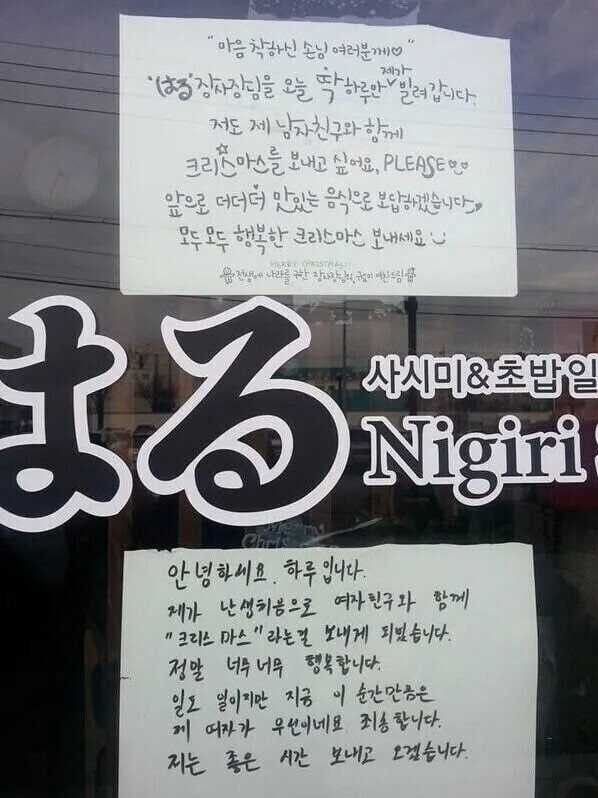 "마음 착하신 손님 여러분께♡"
'はる' 장사장님을 오늘 딱 하루만 제가 빌려갑니다.
저도 제 남자친구와 함께
크리스마스를 보내고 싶어요, PLEASE♡♡
앞으로 더더더 맛있는 음식으로 보답하겠습니다
모두모두 행복한 크리스마스 보내세요
MERRY CHRISTMAS!
전생에 나라를 구한 장사장님의 여친드림
はる
사시미&초밥 일
Nigiri
Merry
Chris
안녕하세요. 하루입니다.
제가 난생처음으로 여자친구와 함께
"크리스마스"라는걸 보내게 되었습니다.
정말 너무너무 행복합니다.
일도 일이지만 지금 이 순간만큼은
제 여자가 우선이네요 죄송합니다.
저는 좋은 시간 보내고 오겠습니다.